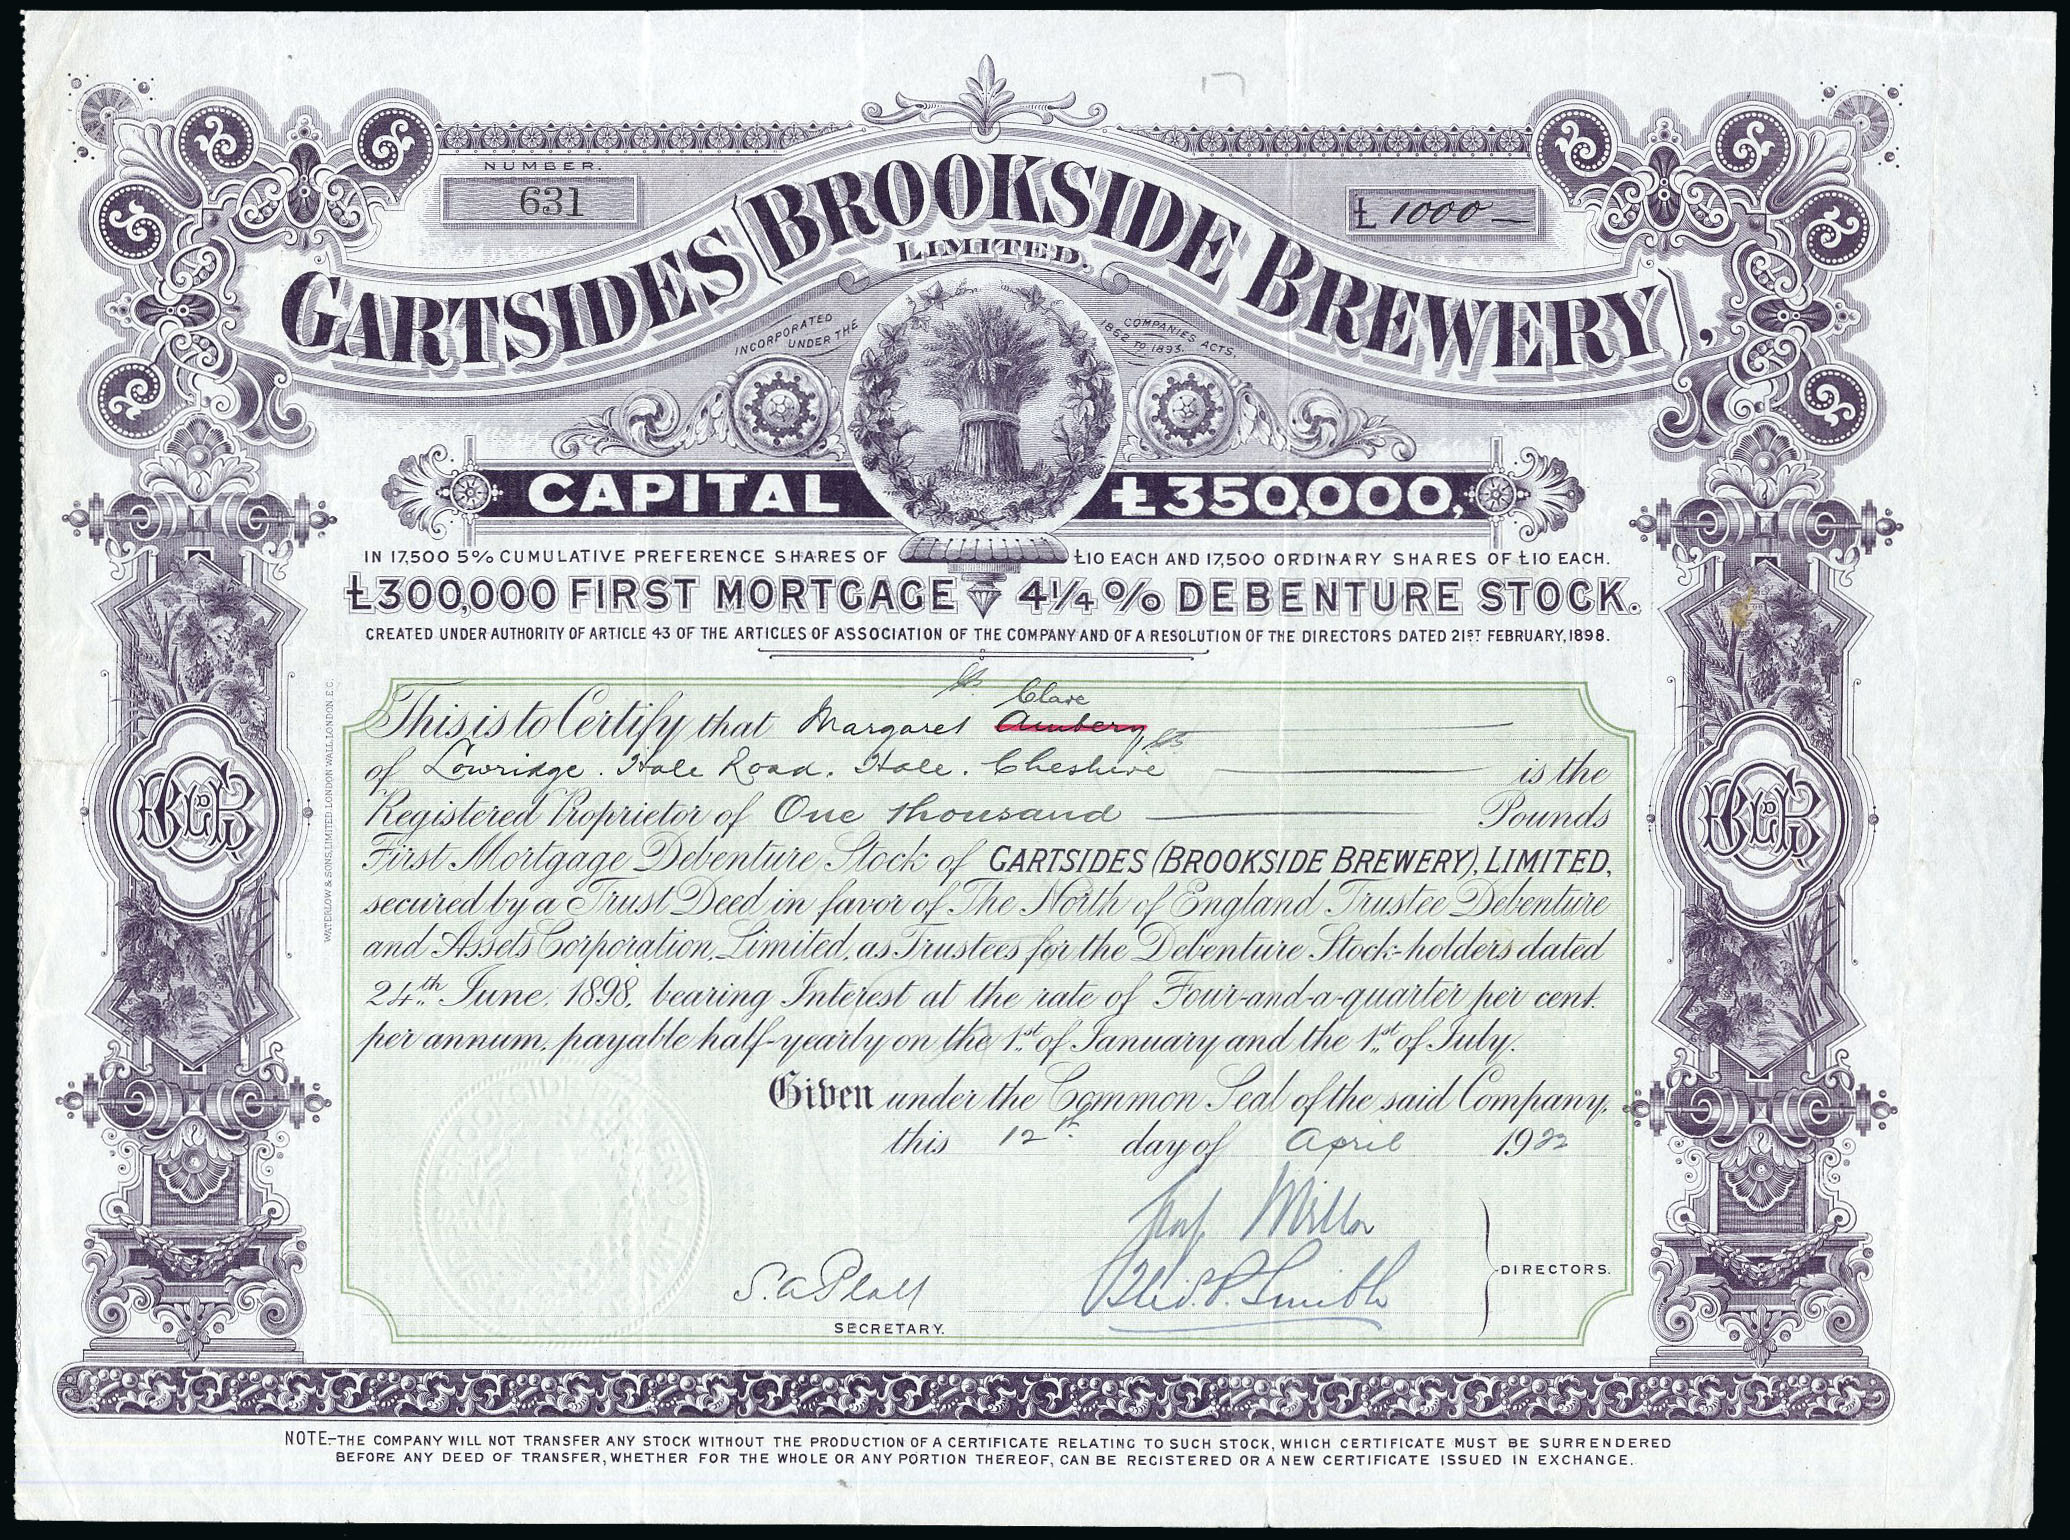 NUMBER.
631
£ 1000 –
GARTSIDES (BROOKSIDE BREWERY),
LIMITED.
INCORPORATED UNDER THE COMPANIES ACTS, 1862 TO 1893.
CAPITAL £350,000,
IN 17,500 5% CUMULATIVE PREFERENCE SHARES OF £10 EACH AND 17,500 ORDINARY SHARES OF £10 EACH.
£300,000 FIRST MORTGAGE 4¼% DEBENTURE STOCK.
CREATED UNDER AUTHORITY OF ARTICLE 43 OF THE ARTICLES OF ASSOCIATION OF THE COMPANY AND OF A RESOLUTION OF THE DIRECTORS DATED 21ST FEBRUARY, 1898.
Clare
This is to Certify that Margaret Ambery
of Lowridge. Hale Road. Hale. Cheshire is the
Registered Proprietor of One thousand Pounds
First Mortgage Debenture Stock of GARTSIDES (BROOKSIDE BREWERY), LIMITED,
secured by a Trust Deed in favor of The North of England Trustee Debenture
and Assets Corporation, Limited, as Trustees for the Debenture Stock-holders dated
24th June, 1898, bearing Interest at the rate of Four-and-a-quarter per cent.
per annum, payable half-yearly on the 1st of January and the 1st of July.
Given under the Common Seal of the said Company,
this 12th day of April 1922
S. A. Platt
SECRETARY.
DIRECTORS.
WATERLOW & SONS LIMITED, LONDON WALL, LONDON, E.C.
NOTE.–THE COMPANY WILL NOT TRANSFER ANY STOCK WITHOUT THE PRODUCTION OF A CERTIFICATE RELATING TO SUCH STOCK, WHICH CERTIFICATE MUST BE SURRENDERED
BEFORE ANY DEED OF TRANSFER, WHETHER FOR THE WHOLE OR ANY PORTION THEREOF, CAN BE REGISTERED OR A NEW CERTIFICATE ISSUED IN EXCHANGE.